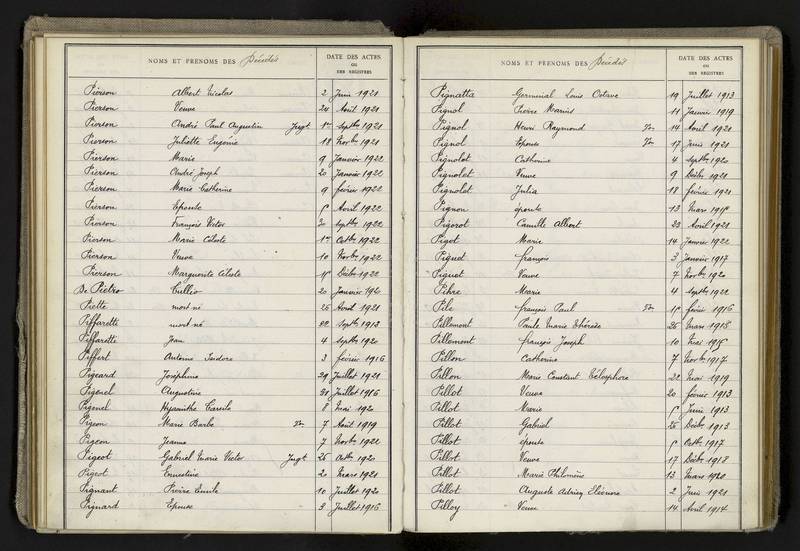 NOMS ET PRENOMS DES Décédés
DATE DES ACTES
OU
DES REGISTRES
Pierson Albert Nicolas 2 Juin 1921
Pierson Veuve 24 Août 1921
Pierson André Paul Augustin Jugt 1er Septbre 1921
Pierson Juliette Eugénie 18 Novbre 1921
Pierson Marie 9 Janvier 1922
Pierson André Joseph 20 Janvier 1922
Pierson Marie Catherine 9 février 1922
Pierson Epouse Avril 1922
Pierson François Victor 30 Septbre 1922
Pierson Marie Céleste 1er Octbre 1922
Pierson Veuve 10 Novbre 1922
Pierson Marguerite Décbre 1922
De Piétro Tullio 20 Janvier 192
Piette mort-né 26 Avril 1921
Piffarette mort-né 22 Septbre 1913
Piffarette Jean 4 Septbre 1920
Piffert Antoine Isidore 3 février 1916
Pigeard Joséphine 29 Juillet 1921
Pigenel Augustine 31 Juillet 1916
Pigenel Hyacinthe 8 Mai 1920
Pigeon Marie Barbe 7 Août 1919
Pigeon Jeanne 7 Novbre 1922
Pigeot Gabriel Marie Victor Jugt 26 Octbre 1920
Pigeot Ernestine 20 Mars 1921
Pignant Pierre Emile 10 Juillet 1920
Pignard Epouse 3 Juillet 1916
NOMS ET PRENOMS DES Décédés
DATE DES ACTES
OU
DES REGISTRES
Pignatta Germinal Louis Octave 19 Juillet 1913
Pignol Pierre Marius 11 Janvier 1919
Pignol Henri Raymond 14 Avril 1921
Pignol Epouse 17 Juin 1921
Pignolet Catherine 4 Septbre 1920
Pignolet Veuve 9 Décbre 1921
Pignolet Julia 18 février 1921
Pignon épouse 13 Mars
Pigorot Camille Albert 23 Avril 1921
Pigot Marie 14 Janvier 1922
Piguet françois 3 Janvier 1917
Piguet Veuve 7 Novbre 1920
Pihre Marie 4 Septbre 1922
Pile françois Paul février 1916
Pillement Paule Marie Thérèse 26 Mars 1918
Pillement françois Joseph 10 Mai
Pillon Catherine 7 Novbre 1917
Pillon Marie Constant Télesphore 22 Mai 1919
Pillot Veuve 20 février 1913
Pillot Marie Juin 1913
Pillot Gabriel 26 Décbre 1913
Pillot épouse Octbre 1917
Pillot Veuve 17 Décbre 1918
Pillot Marie Philomène 13 Mars 1920
Pillot Auguste Adrien Eléonore 2 Juin 1921
Pilloy Veuve 14 Avril 1914